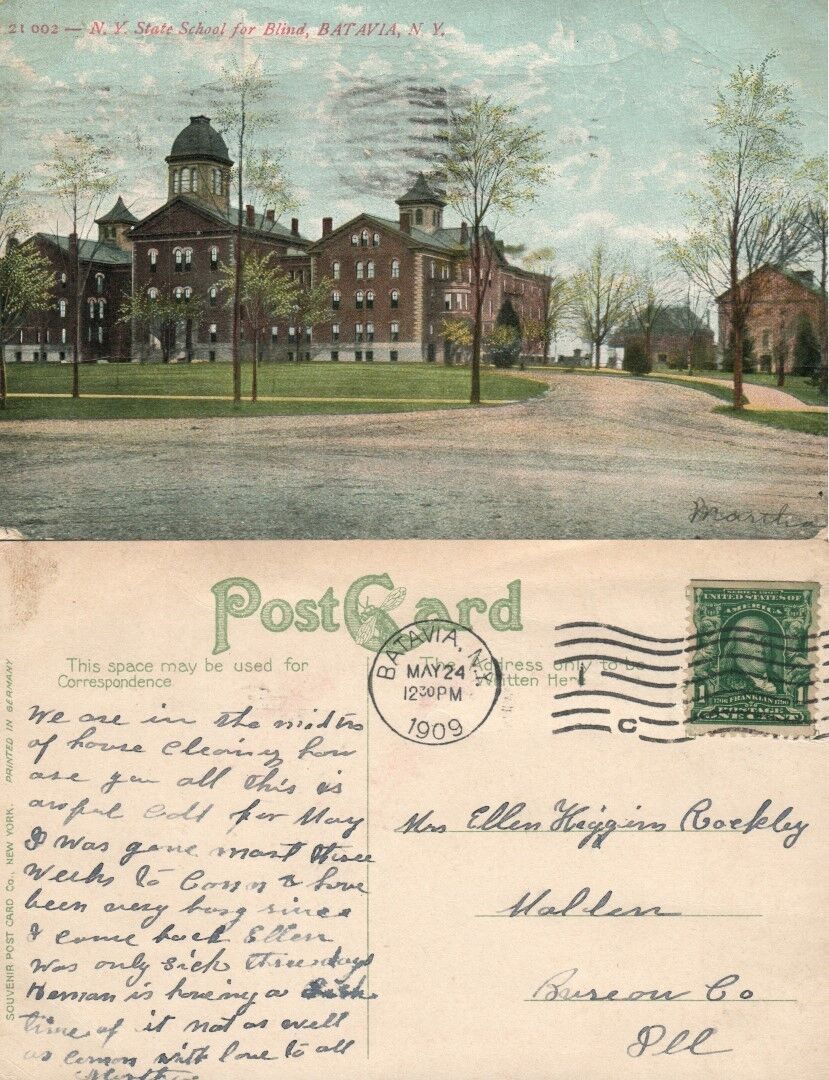 21 002 — N. Y. State School for Blind, BATAVIA, N. Y.
Martha
Post Card
This space may be used for
Correspondence
The Address only to be
Written Here
BATAVIA, N.Y.
MAY 24
12 30 PM
1909
C
SERIES 1902
UNITED STATES OF
AMERICA
1706 FRANKLIN 1790
POSTAGE
1 ONE CENT 1
SOUVENIR POST CARD Co., NEW YORK. PRINTED IN GERMANY
We are in the midts
of house cleaning how
are you all this is
awful cold for May
I was gone most three
weeks to Conn & have
been very busy since
I come back Ellen
was only sick three days
Heman is having a
time of it not as well
as common with love to all
Martha
Mrs Ellen Higgins Rockley
Malden
Bureau Co
Ill